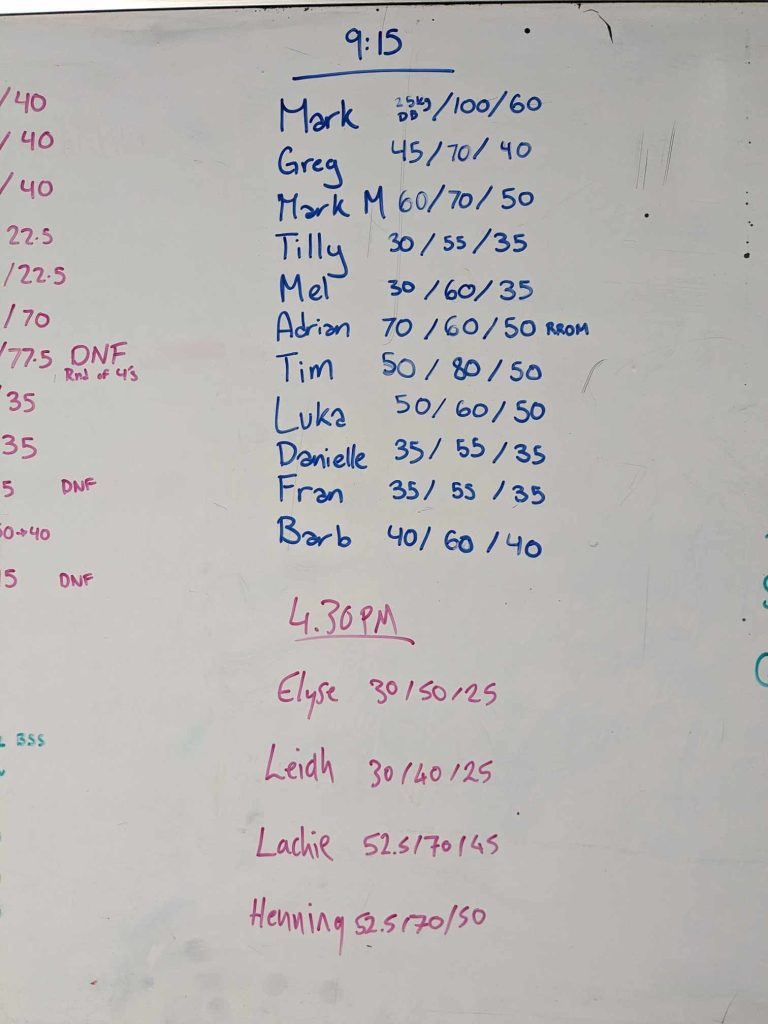 /40
/40
/40
22.5
/22.5
/70
/77.5 DNF
Rnd of 4's
/35
35
5 DNF
0→40
5 DNF
BSS
9:15
Mark 25kg DB/100/60
Greg 45/70/40
Mark M 60/70/50
Tilly 30/55/35
Mel 30/60/35
Adrian 70/60/50 RROM
Tim 50/80/50
Luka 50/60/50
Danielle 35/55/35
Fran 35/55/35
Barb 40/60/40
4.30PM
Elyse 30/50/25
Leidh 30/40/25
Lachie 52.5/70/45
Henning 52.5/70/50